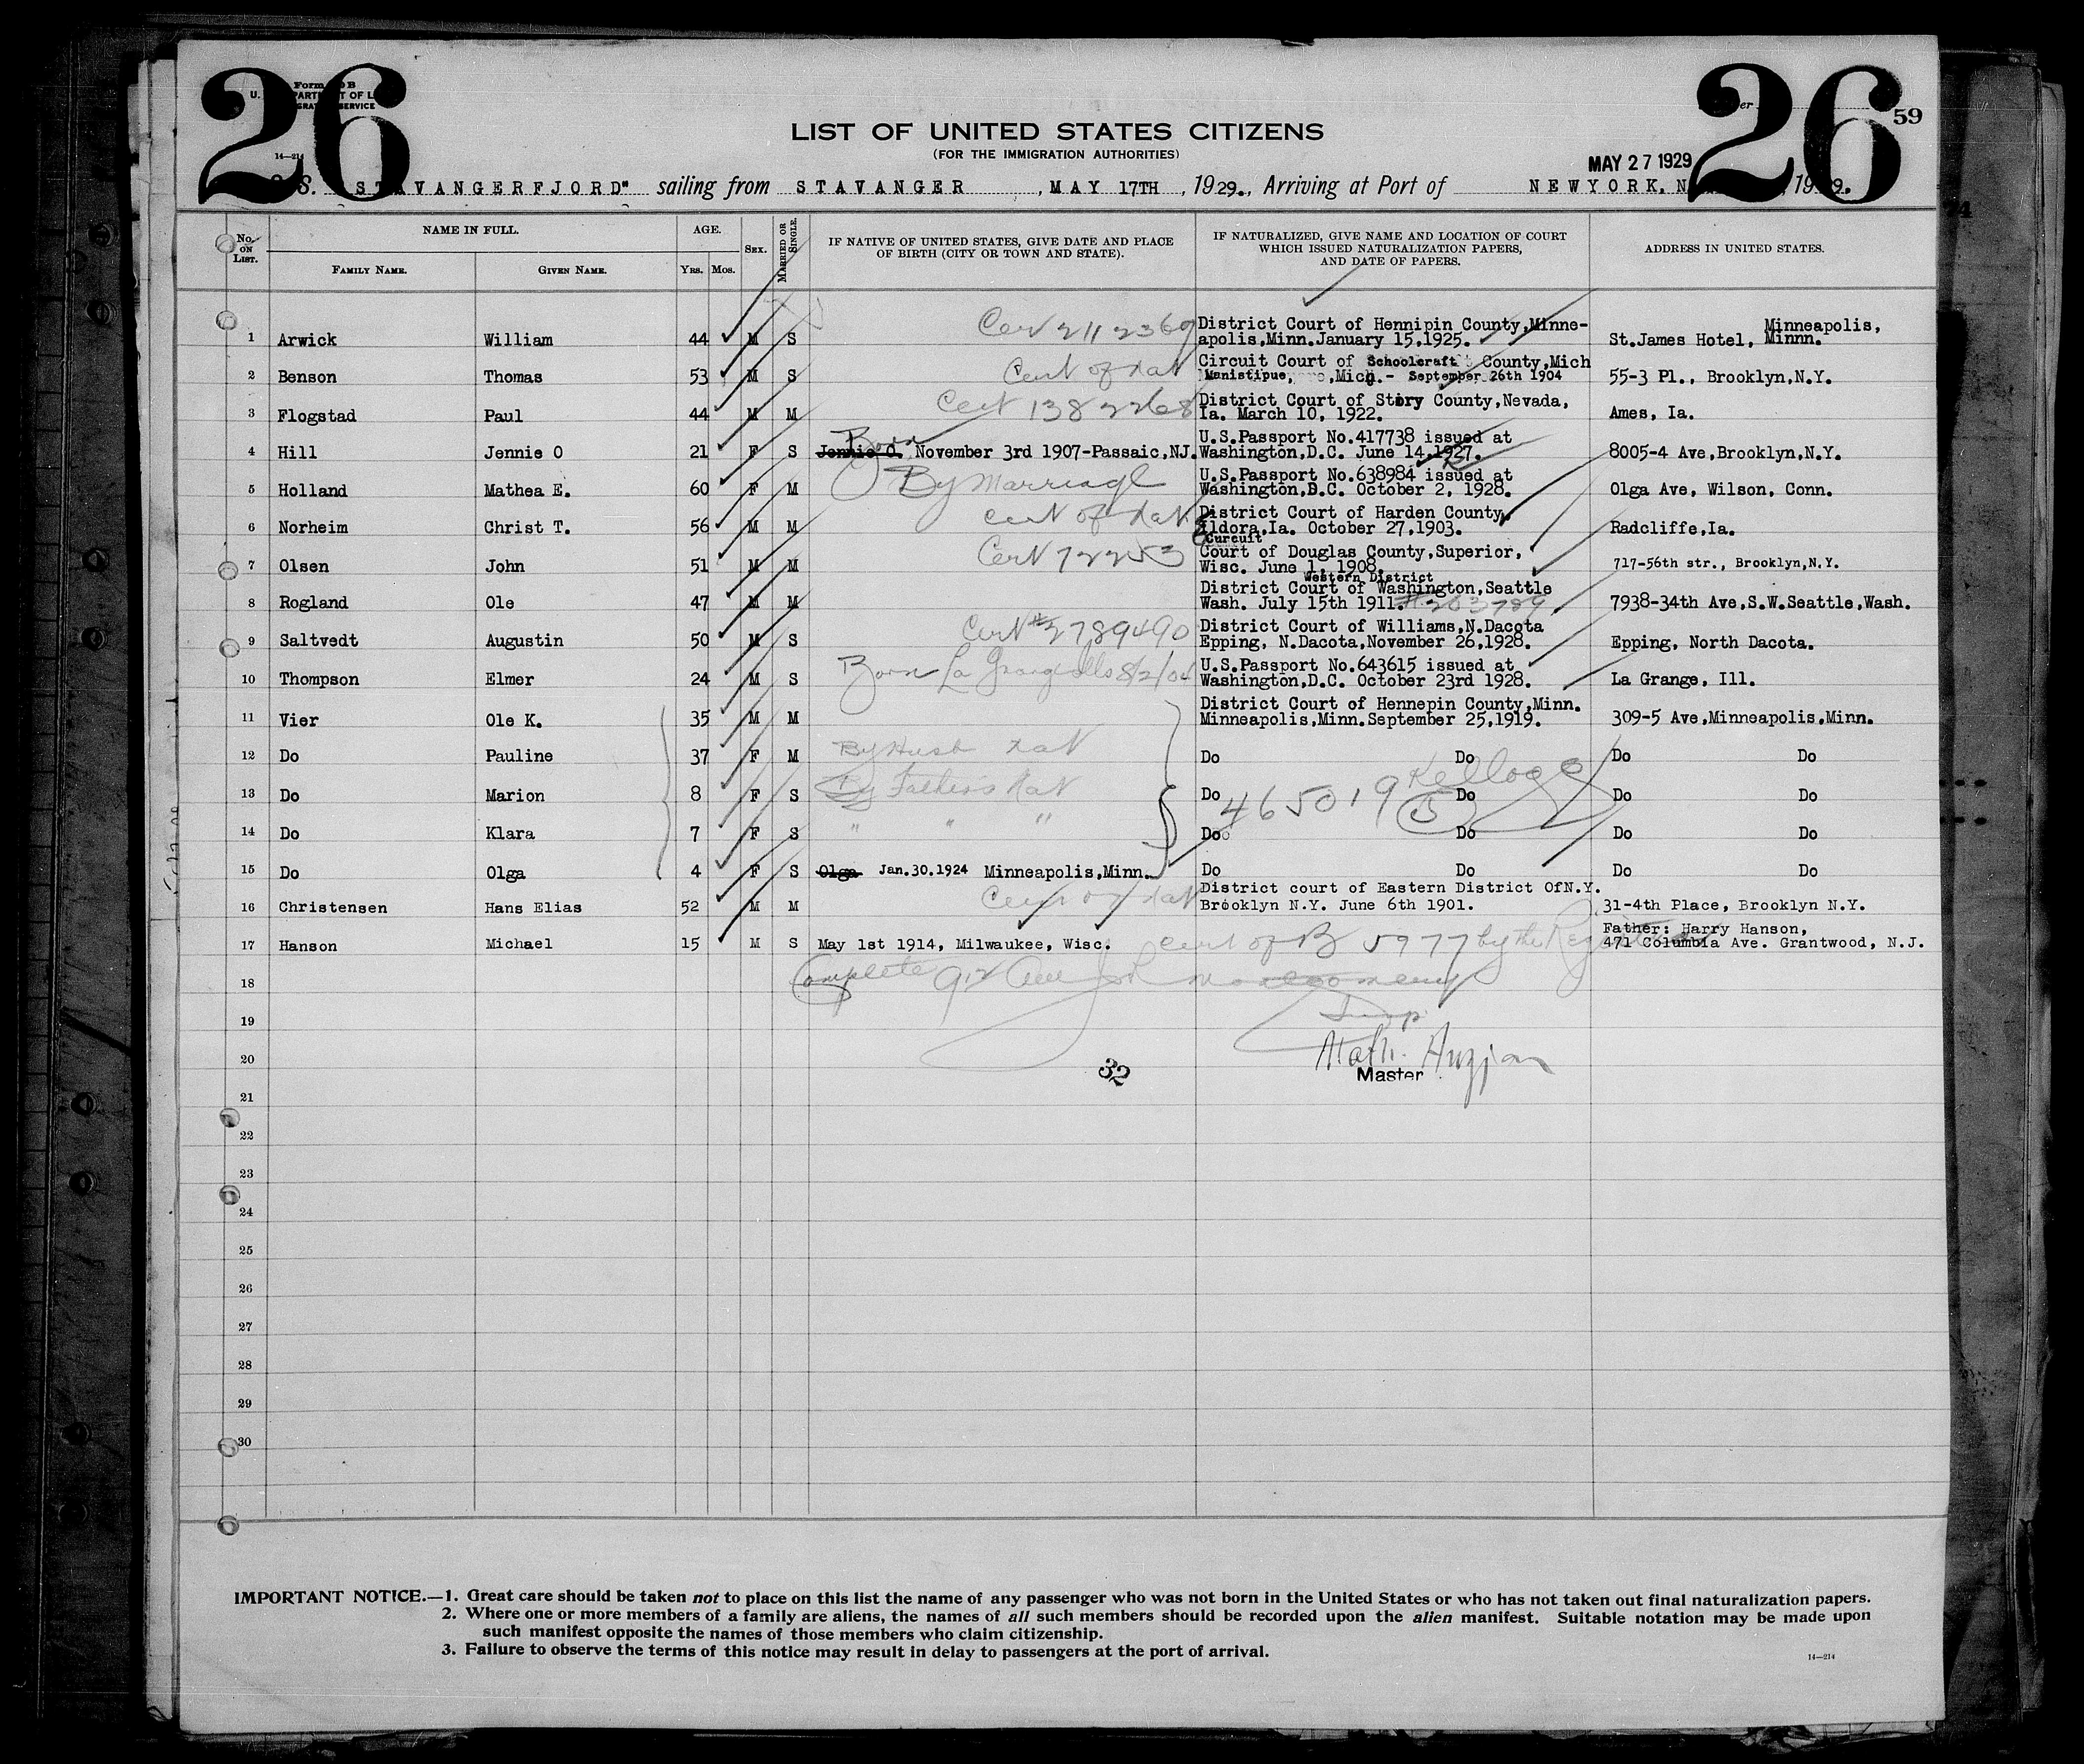 26
26
59
LIST OF UNITED STATES CITIZENS
(FOR THE IMMIGRATION AUTHORITIES)
MAY 27 1929
S. STAVANGERFJORD" sailing from STAVANGER, MAY 17TH, 1929., Arriving at Port of NEWYORK.
No. ON LIST.
NAME IN FULL.
FAMILY NAME.
GIVEN NAME.
AGE.
YRS.
MOS.
SEX.
MARRIED OR SINGLE.
IF NATIVE OF UNITED STATES, GIVE DATE AND PLACE
OF BIRTH (CITY OR TOWN AND STATE).
IF NATURALIZED, GIVE NAME AND LOCATION OF COURT
WHICH ISSUED NATURALIZATION PAPERS,
AND DATE OF PAPERS.
ADDRESS IN UNITED STATES.
Cert 2112369 District Court of Hennipin County,Minne- Minneapolis,
1 Arwick William 44 M S apolis,Minn.January 15,1925. St.James Hotel, Minnn.
Cert of Nat Circuit Court of Schoolcraft County,Mich
2 Benson Thomas 53 M S Manistipue, ,Mich.- September 26th 1904 55-3 Pl., Brooklyn,N.Y.
Cert 1382268 District Court of Story County,Nevada,
3 Flogstad Paul 44 M M Ia. March 10, 1922. Ames, Ia.
Born U.S.Passport No.417738 issued at
4 Hill Jennie O 21 F S Jennie O. November 3rd 1907-Passaic,NJ. Washington,D.C. June 14,1927. 8005-4 Ave,Brooklyn,N.Y.
By Marriage U.S.Passport No.638984 issued at
5 Holland Mathea E. 60 F M Washington,D.C. October 2, 1928. Olga Ave, Wilson, Conn.
Cert of Nat District Court of Harden County,
6 Norheim Christ T. 56 M M Eldora,Ia. October 27,1903. Radcliffe,Ia.
Curcuit
Cert 72253 Court of Douglas County,Superior,
7 Olsen John 51 M M Wisc. June 1, 1908. 717-56th str., Brooklyn,N.Y.
Western District
District Court of Washington,Seattle
8 Rogland Ole 47 M M Wash. July 15th 1911. 7938-34th Ave,S.W.Seattle,Wash.
Cert #2789490 District Court of Williams,N.Dacota
9 Saltvedt Augustin 50 M S Epping, N.Dacota,November 26,1928. Epping, North Dacota.
Born La Grange Ills 8/2/04 U.S.Passport No.643615 issued at
10 Thompson Elmer 24 M S Washington,D.C. October 23rd 1928. La Grange, Ill.
District Court of Hennepin County,Minn.
11 Vier Ole K. 35 M M Minneapolis,Minn.September 25,1919. 309-5 Ave,Minneapolis,Minn.
12 Do Pauline 37 F M By Husb Nat Do Do Do Do
Kellogg
13 Do Marion 8 F S By Father's Nat Do 465019 5 Do Do Do
14 Do Klara 7 F S " " " Do Do Do Do
15 Do Olga 4 F S Olga Jan.30.1924 Minneapolis,Minn. Do Do Do Do
Cert of Nat District court of Eastern District OfN.Y.
16 Christensen Hans Elias 52 M M Brooklyn N.Y. June 6th 1901. 31-4th Place, Brooklyn N.Y.
Father: Harry Hanson,
17 Hanson Michael 15 M S May 1st 1914, Milwaukee, Wisc. Cert of B 5977 by the 471 Columbia Ave. Grantwood, N.J.
18 Complete
19
20
32
Master
21
22
23
24
25
26
27
28
29
30
IMPORTANT NOTICE.—1. Great care should be taken not to place on this list the name of any passenger who was not born in the United States or who has not taken out final naturalization papers.
2. Where one or more members of a family are aliens, the names of all such members should be recorded upon the alien manifest. Suitable notation may be made upon
such manifest opposite the names of those members who claim citizenship.
3. Failure to observe the terms of this notice may result in delay to passengers at the port of arrival.
14—214